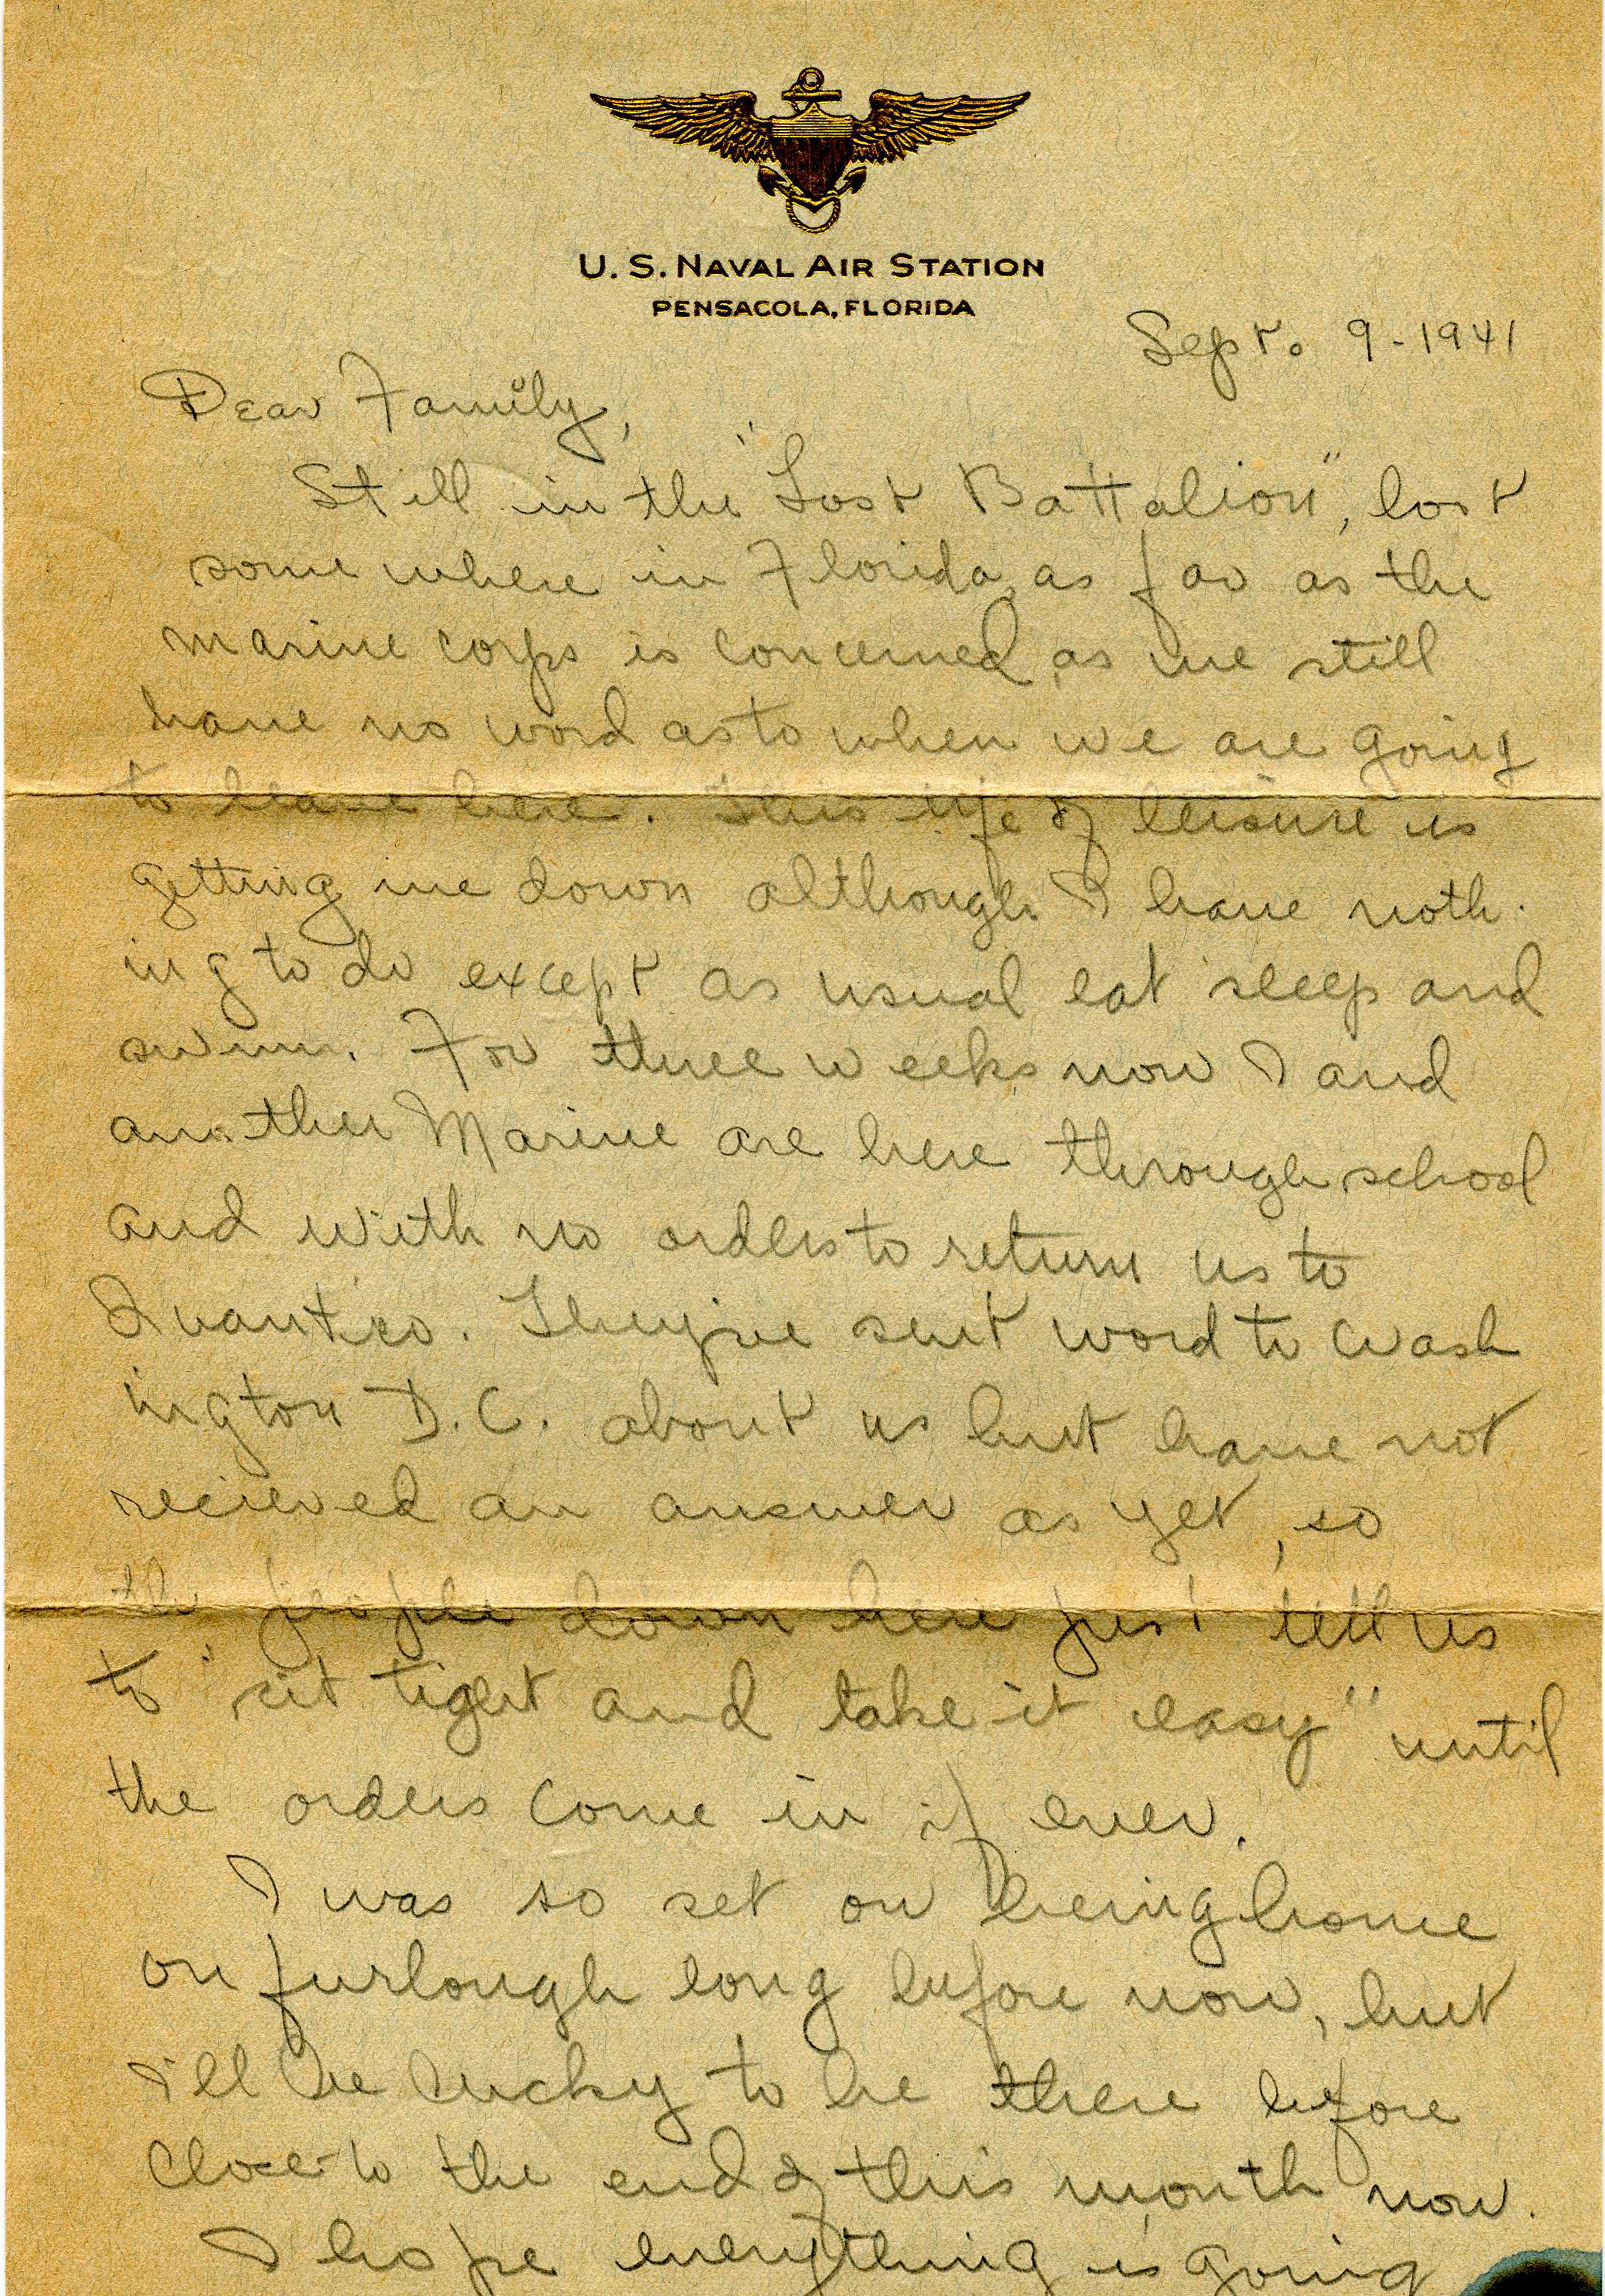 U. S. NAVAL AIR STATION
PENSACOLA, FLORIDA
Sept. 9-1941
Dear Family,
Still in the "Lost Battalion", lost
some where in Florida, as far as the
marine corps is concerned, as we still
have no word as to when we are going
to leave here. This life of leisure is
getting me down although I have noth-
ing to do except as usual eat sleep and
swim. For three weeks now I and
another Marine are here through school
and with no orders to return us to
Quantico. They've sent word to Wash
ington D.C. about us but have not
recieved an answer as yet, so
the people down here just tell us
to "sit tight and take it easy" until
the orders come in if ever.
I was so set on being home
on furlough long before now, but
I'll be lucky to be there before
close to the end of this month now.
I hope everything is going